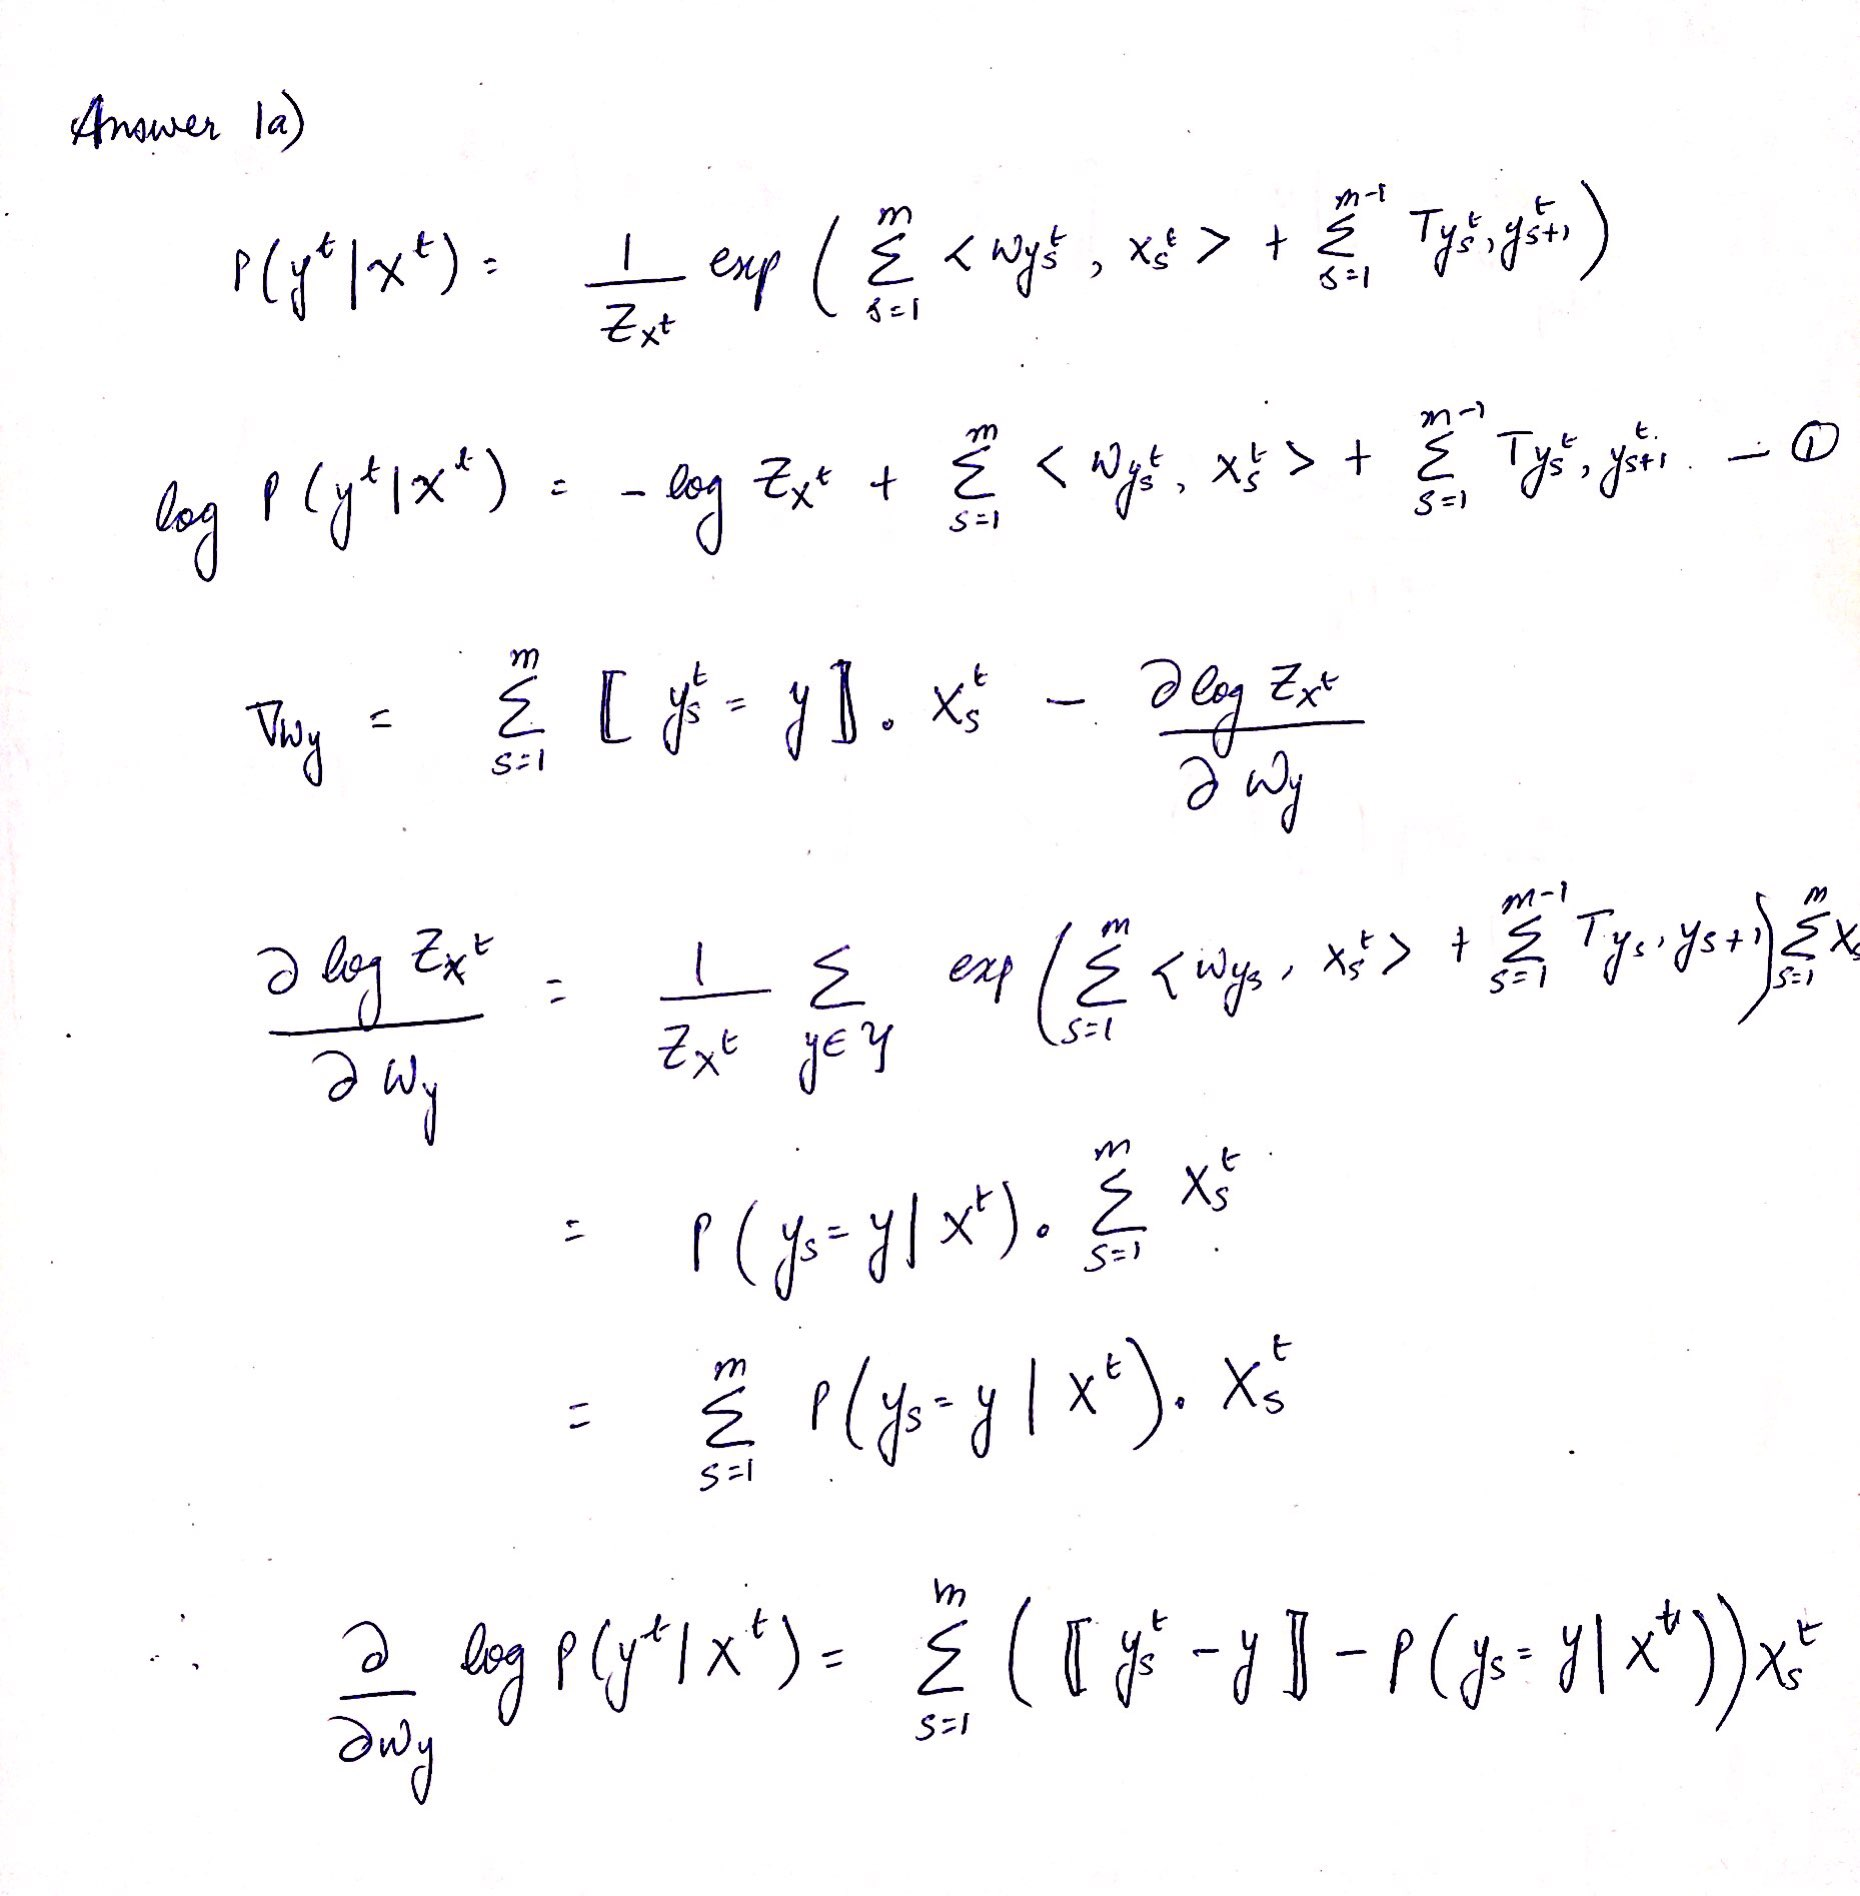 Answer 1a)
P(y^t | x^t) = 1/Z_{x^t} exp ( Σ_{s=1}^{m} < w_{y_s^t}, x_s^t > + Σ_{s=1}^{m-1} T_{y_s^t, y_{s+1}^t} )
log P(y^t | x^t) = - log Z_{x^t} + Σ_{s=1}^{m} < w_{y_s^t}, x_s^t > + Σ_{s=1}^{m-1} T_{y_s^t, y_{s+1}^t} — ①
∇_{w_y} = Σ_{s=1}^{m} ⟦ y_s^t = y ⟧ . x_s^t - ∂ log Z_{x^t} / ∂ w_y
∂ log Z_{x^t} / ∂ w_y = 1/Z_{x^t} Σ_{y∈𝒴} exp ( Σ_{s=1}^{m} < w_{y_s}, x_s^t > + Σ_{s=1}^{m-1} T_{y_s, y_{s+1}} ) Σ_{s=1}^{m} x_s
= P(y_s = y | x^t) . Σ_{s=1}^{m} x_s^t
= Σ_{s=1}^{m} P(y_s = y | x^t) . x_s^t
∴ ∂/∂w_y log P(y^t | x^t) = Σ_{s=1}^{m} ( ⟦ y_s^t - y ⟧ - P(y_s = y | x^t) ) x_s^t